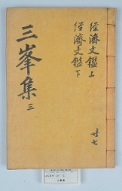 三峯集 三
經濟文鑑上
經濟文鑑下
共七